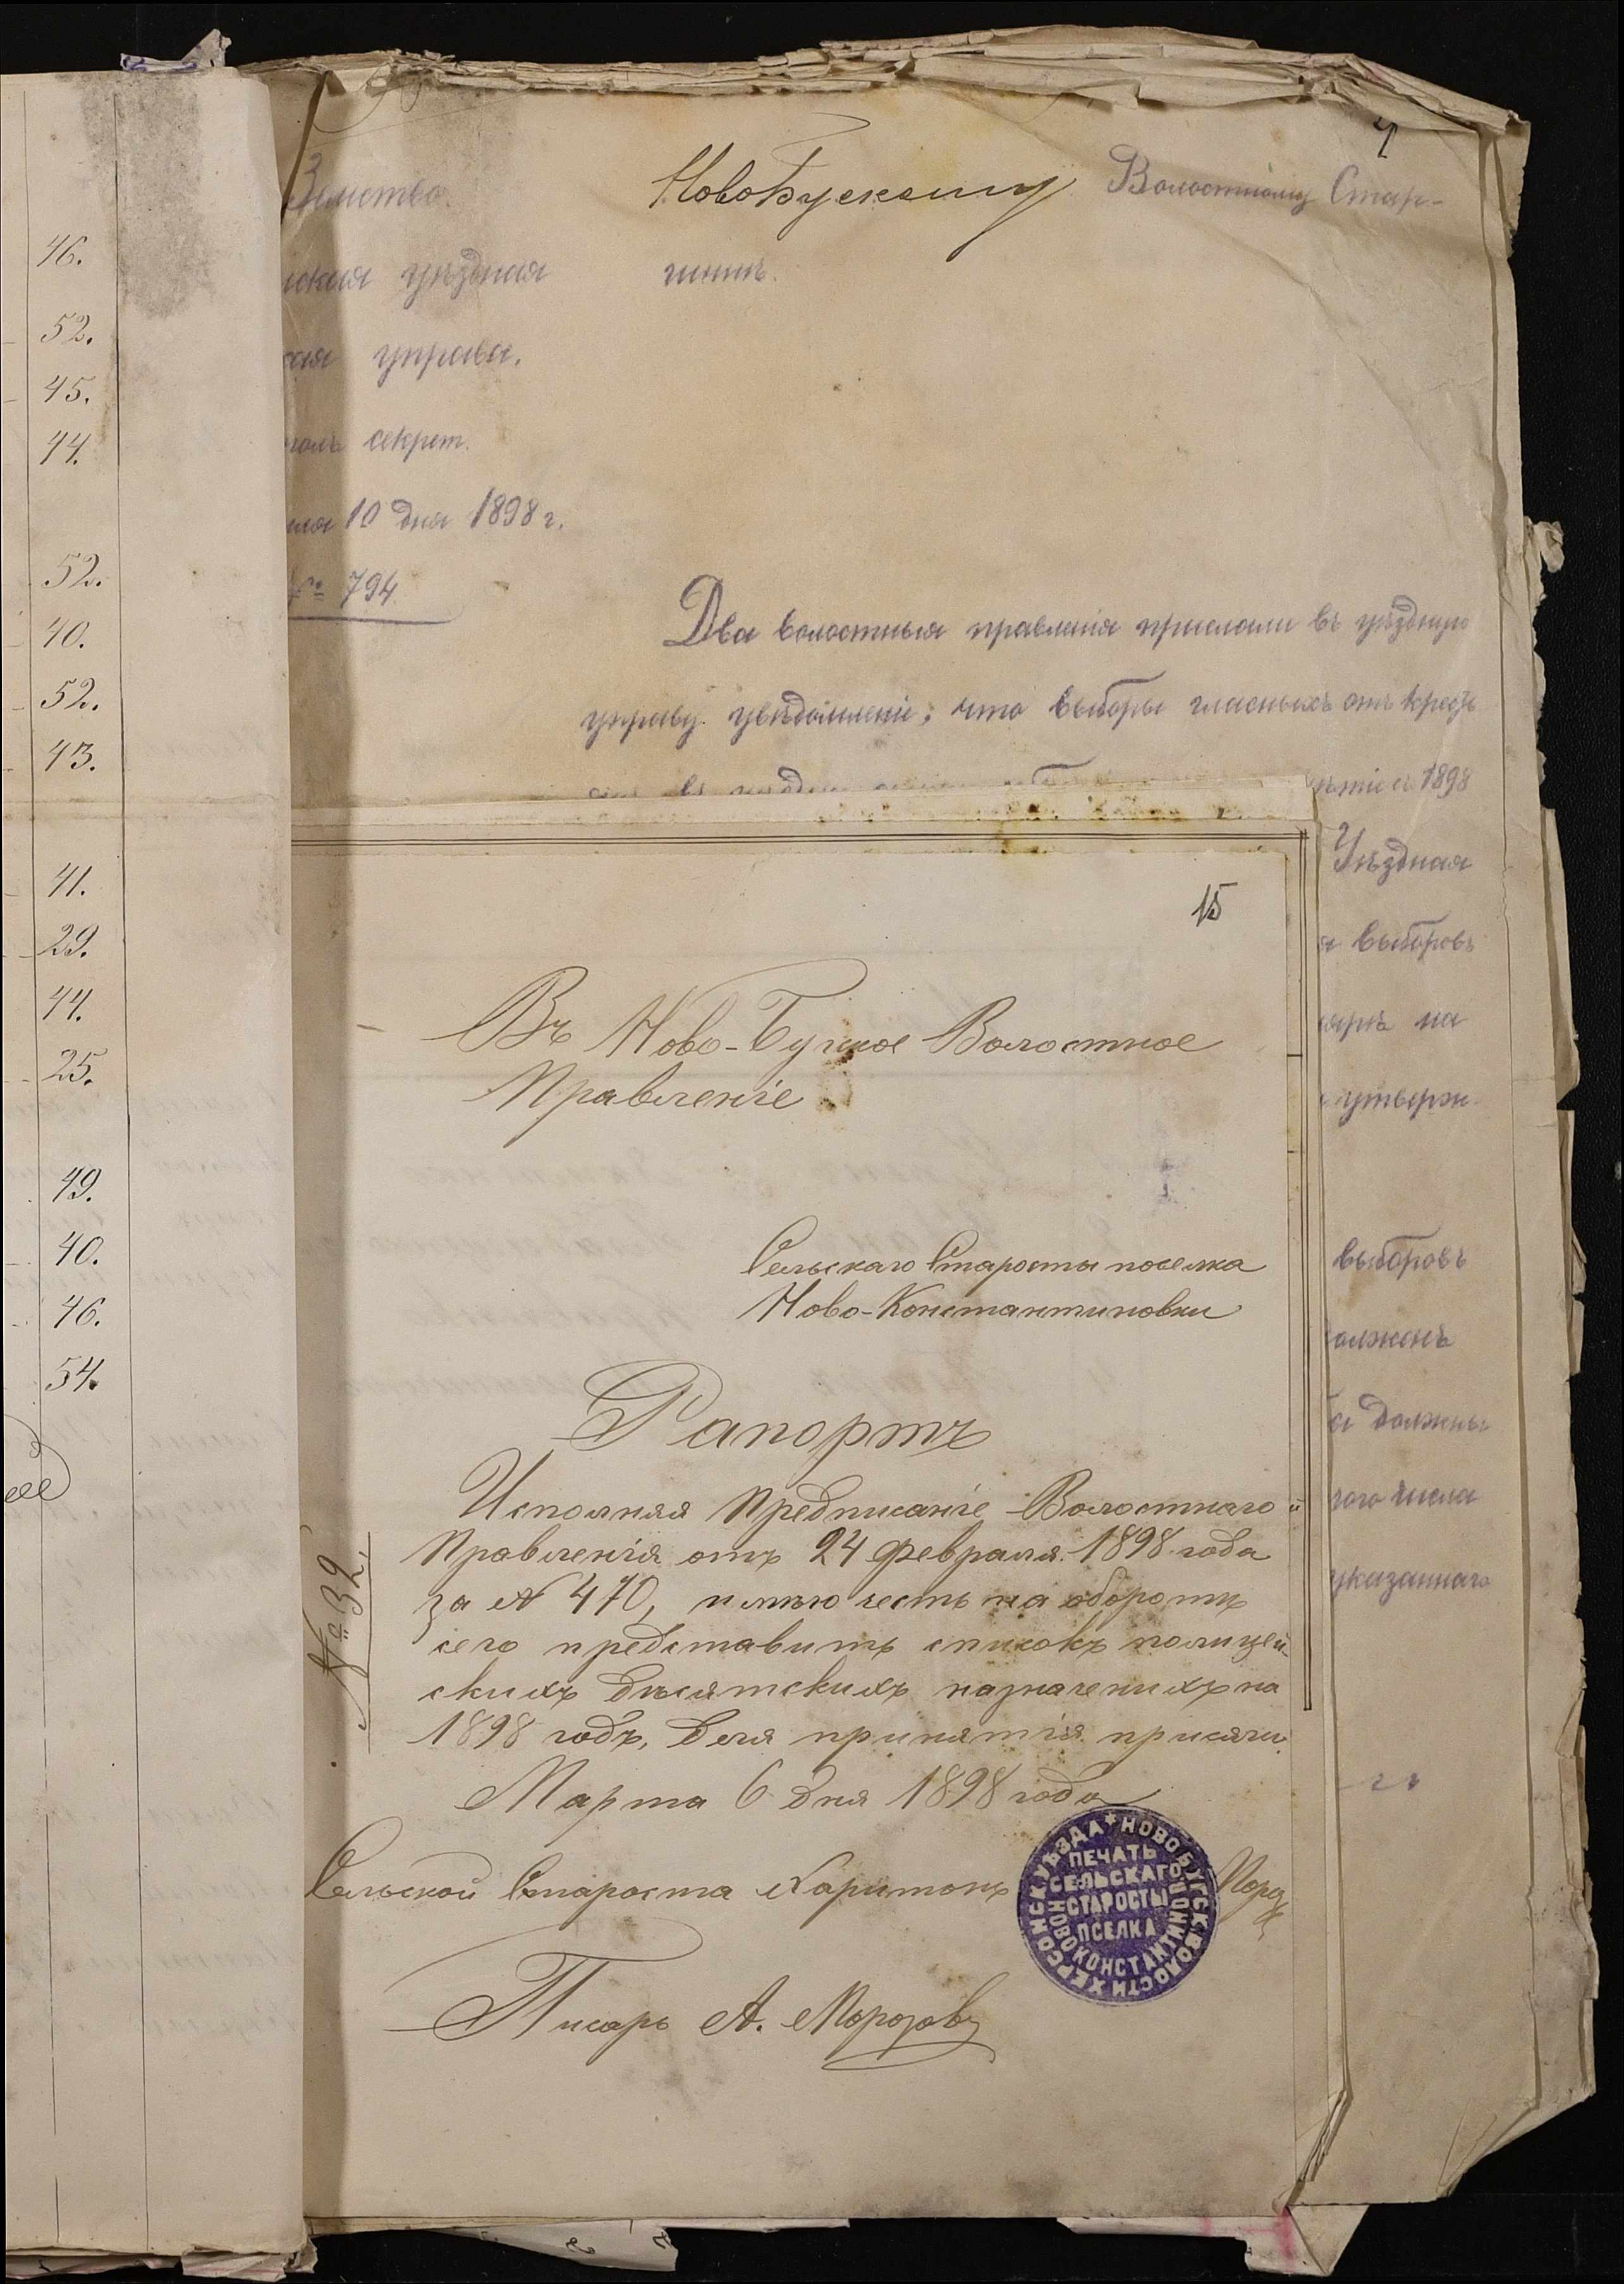 46.
52.
45.
44.
52.
40.
52.
43.
41.
29.
44.
25.
49.
40.
46.
54.
НовоБугскому Волостному Стар-
шинѣ.
уѣздная
управа.
секрет.
10 дня 1898 г.
№ 794.
Два волостныя правленія прислали въ уѣздную
управу увѣдомленіе, что выборы гласныхъ отъ кресть
1898
Уѣздная
выборовъ
на
утверж-
выборовъ
должны
числа
указаннаго
15
Въ Ново-Бугское Волостное
Правленіе
Сельскаго Старосты поселка
Ново-Константиновки
Рапортъ
№ 32.
Исполняя Предписаніе Волостнаго
Правленія отъ 24 февраля 1898 года
за № 470, имѣю честь на оборотѣ
сего представить списокъ полицей-
скихъ десятскихъ назначенихъ на
1898 годъ, для принятія присяги.
Марта 6 дня 1898 года
Сельской Староста Харитонъ Мороз
ХЕРСОНСК УѢЗДА * НОВОБУГСК ВОЛОСТИ
ПЕЧАТЬ
СЕЛЬСКАГО
СТАРОСТЫ
ПСЕЛКА
НОВОКОНСТАНТИНО
Писарь А. Морозовъ